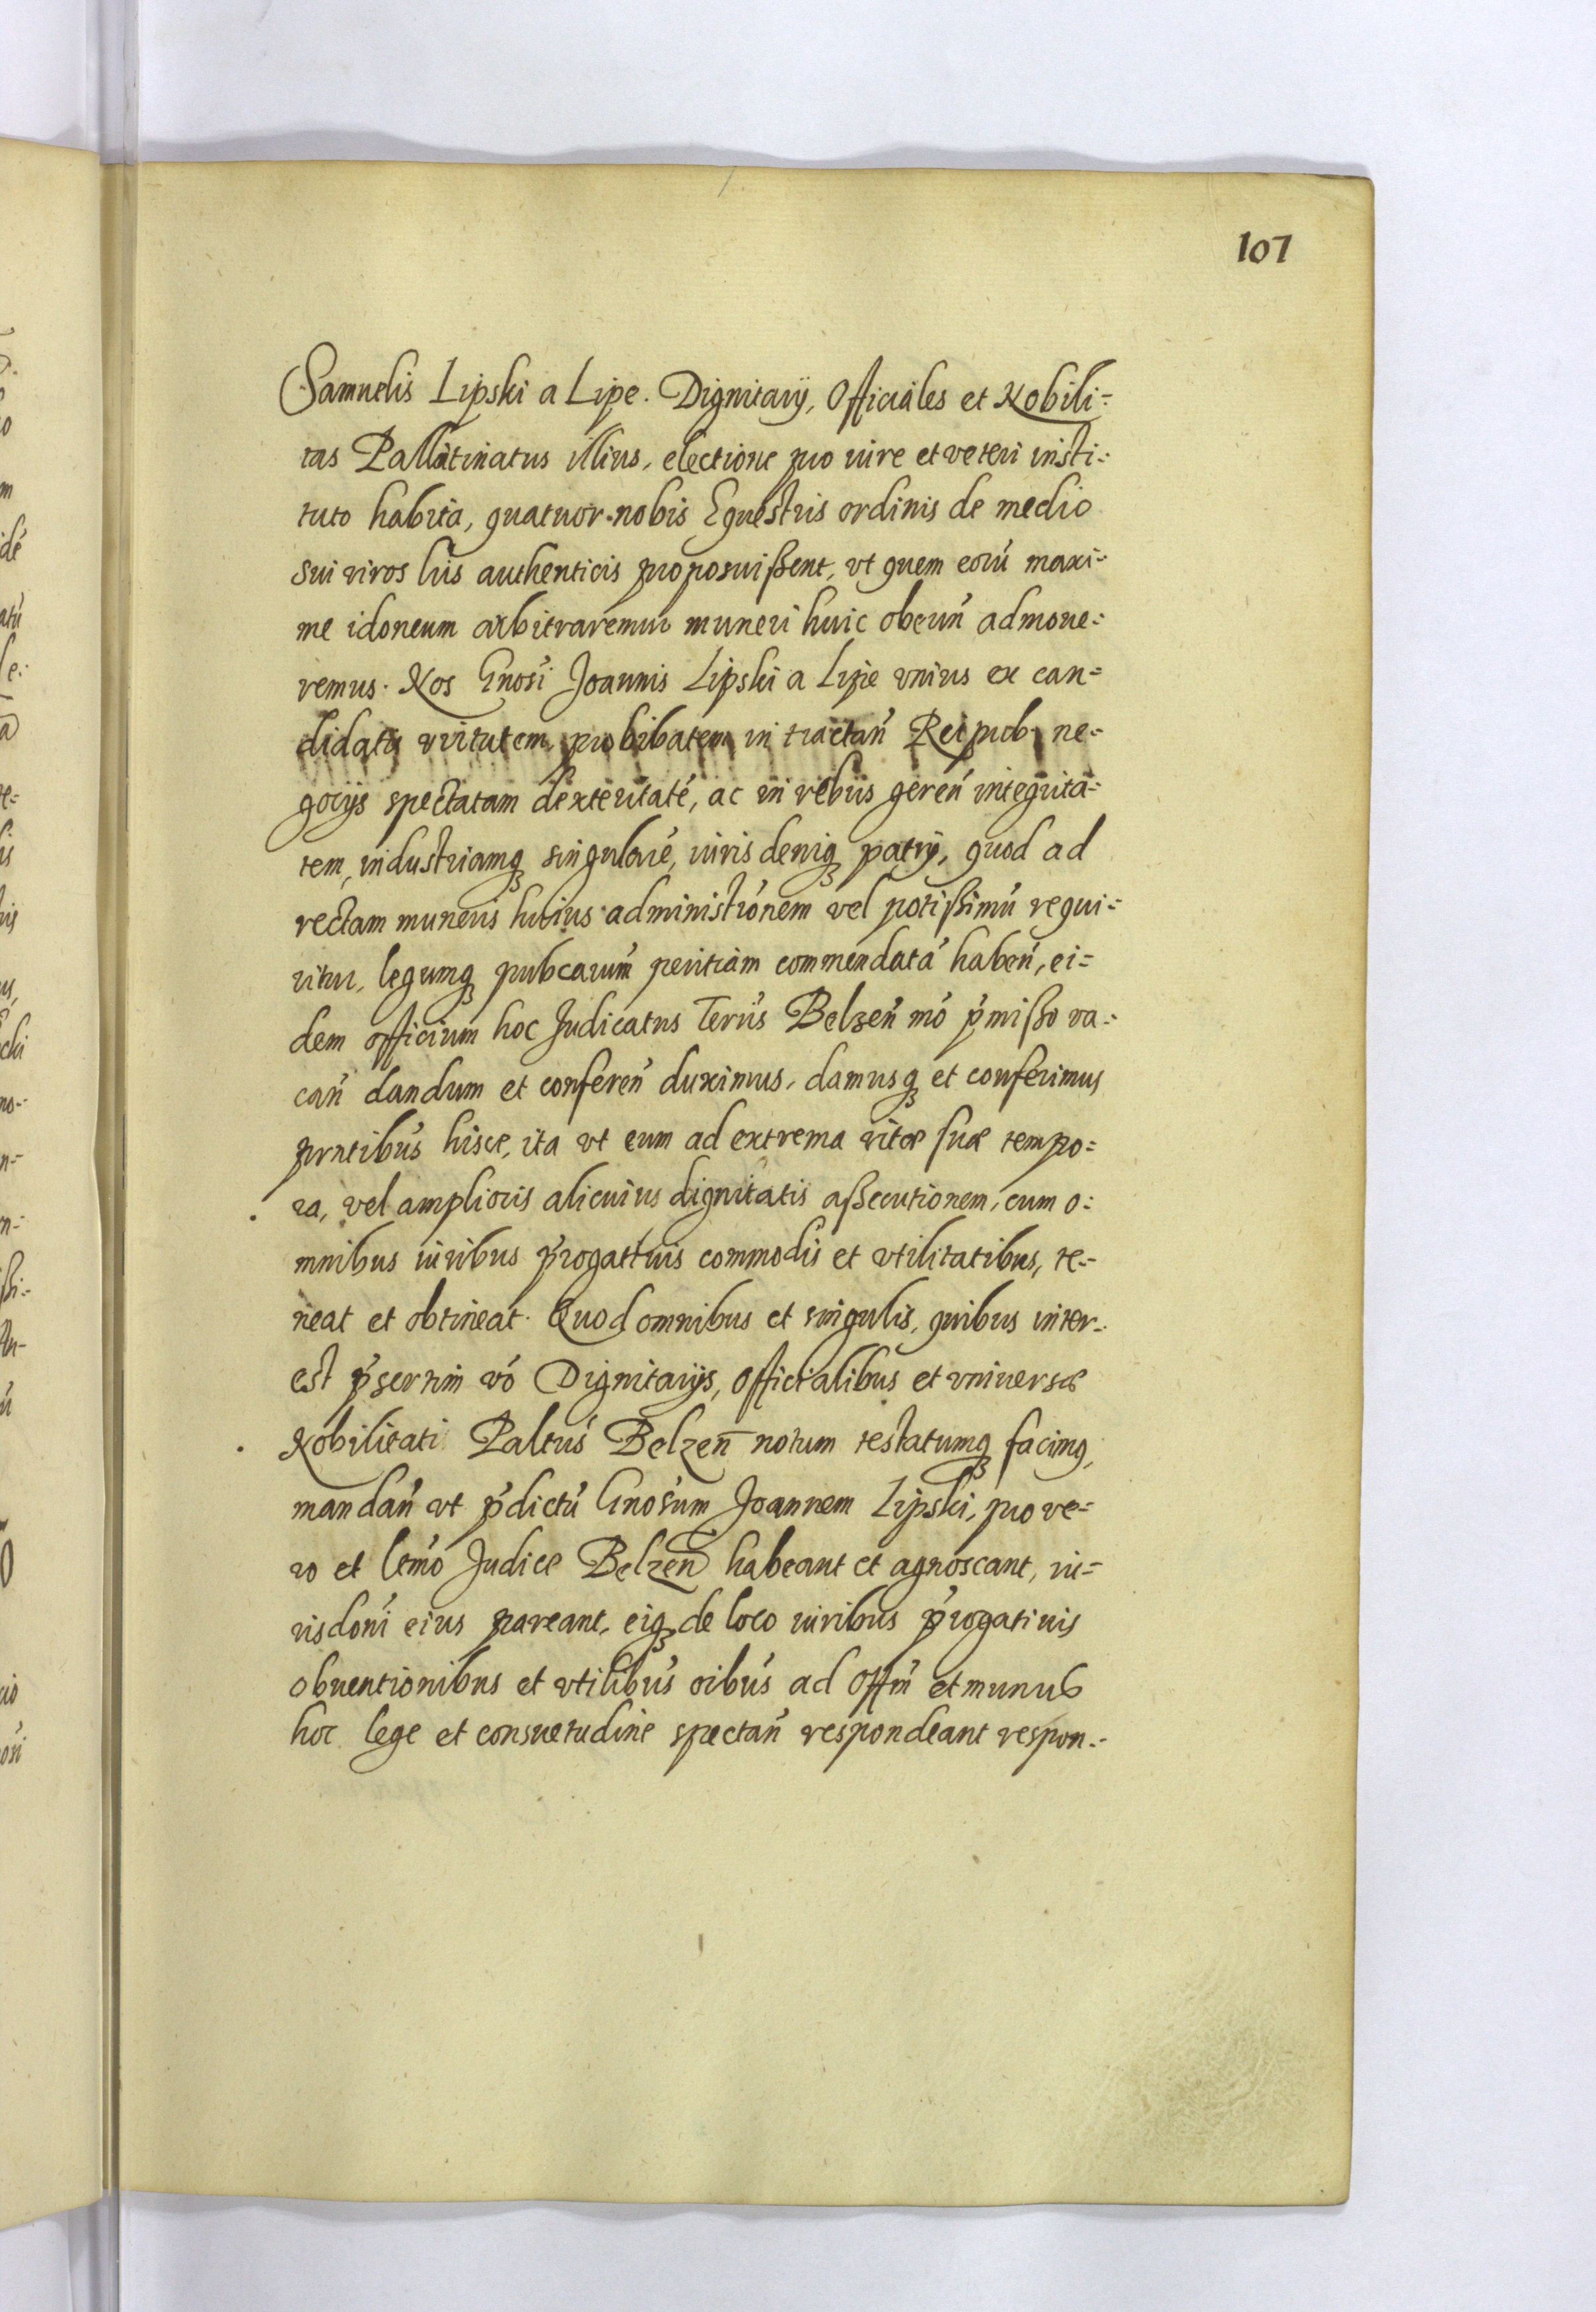 107
Samuelis Lipski a Lipe. Dignitarij, Officiales et Nobili=
tas Pallatinatus illius, electione pro iure et veteri insti=
tuto habita, quatuor nobis Equestris ordinis de medio
sui viros lris authenticis proposuißent, vt quem eorú maxi=
me idoneum arbitraremur muneri huic obeun̄ admoue=
remus. Nos Gnosi Joannis Lipski a Lipie vnius ex can=
didatis virtutem, probibatem in tractan̄ Reipub. ne=
gocijs spectatam dexteritaté, ac in rebus geren̄ integrita=
tem, industriamq singularé, iuris deniq patrij, quod ad
rectam muneris huius administrónem vel potißimú requi=
ritur, legumq pubcarum peritiam commendatá haben̄, ei=
dem officium hoc Judicatus Terris Belzen̄ mó p̄mißo va=
can̄ dandum et conferen̄ duximus, damusq et conferimus
prntibus hisce, ita vt eum ad extrema vitæ suæ tempo=
ra, vel amplioris alicuius dignitatis aßecutionem, cum o=
mnibus iuribus p̄rogatiuis commodis et vtilitatibus, te=
neat et obtineat. Quod omnibus et singulis, quibus inter=
est p̄sertim vó Dignitarijs, Officialibus et vniuersæ
Nobilitati Paltus Belzen̄ notum testatumq facimq,
mandan̄ vt p̄dictú Gnosum Joannem Lipski, pro ve=
ro et ltmo Judice Belzen̄ habeant et agnoscant, iu=
risdoni eius pareant, eiq de loco iuribus p̄rogatiuis
obuentionibus et vtilibus oibus ad Offm et munus
hoc lege et consuetudine spectan̄ respondeant respon=